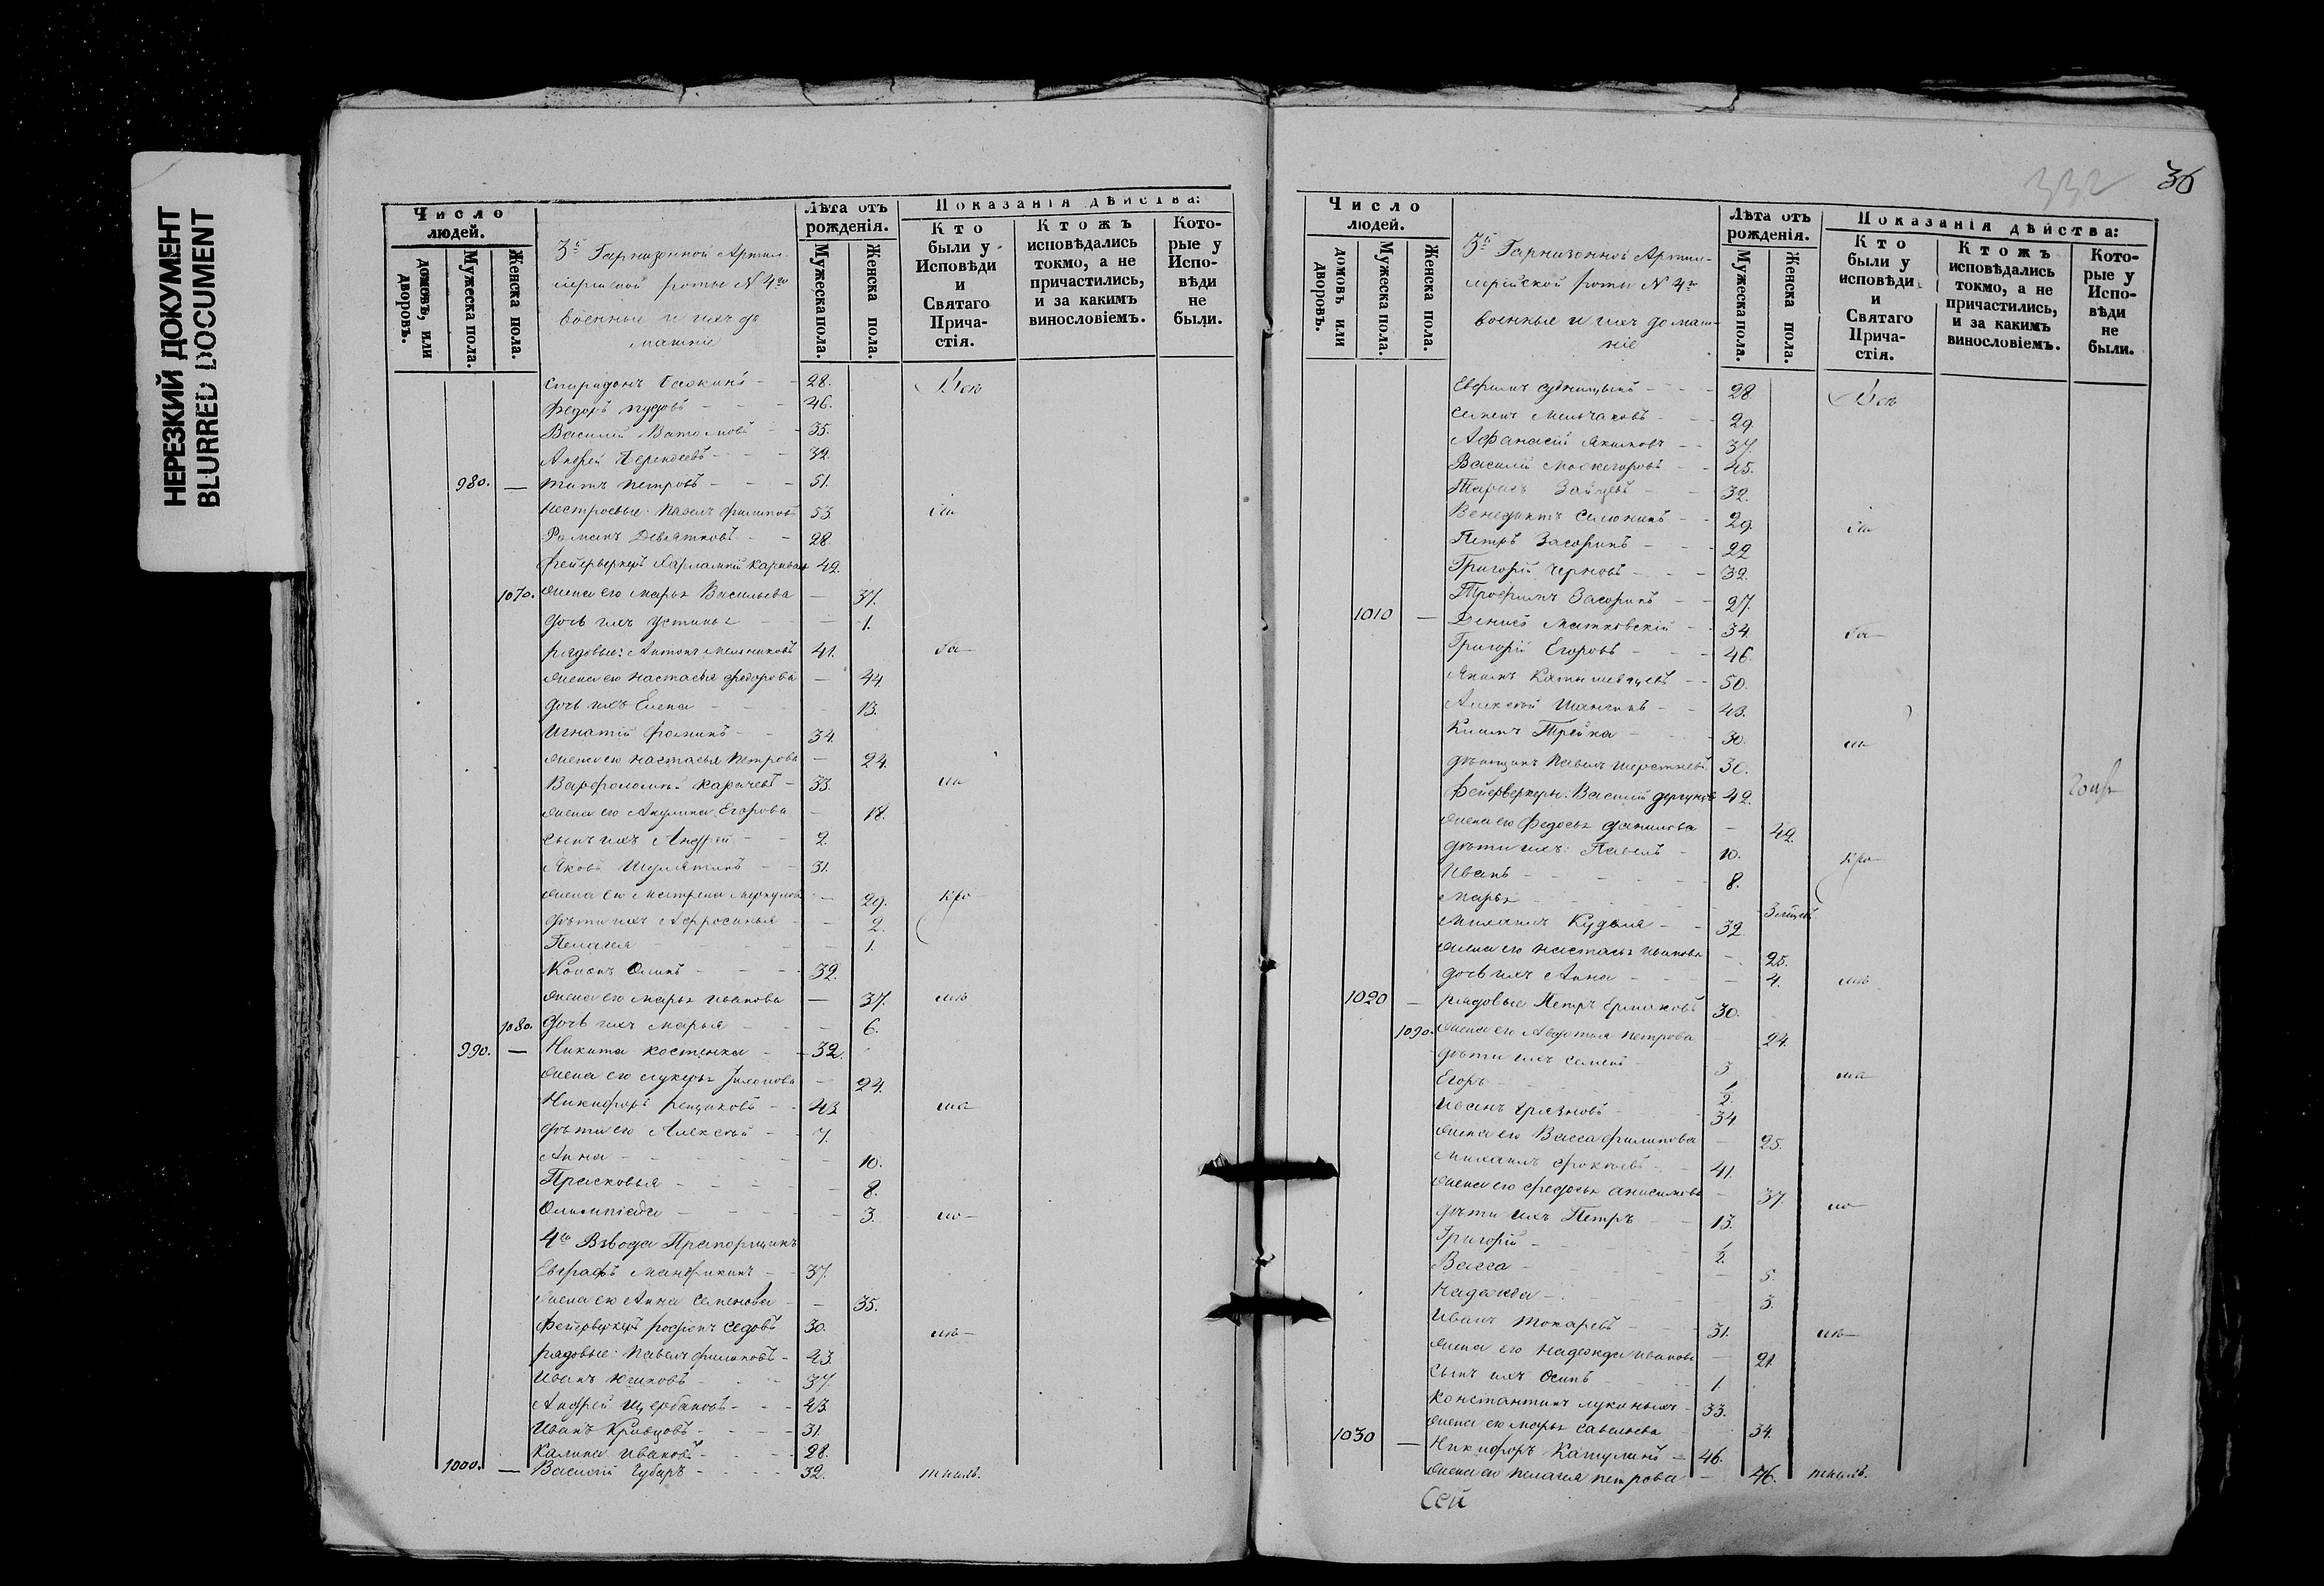 НЕРЕЗКИЙ ДОКУМЕНТ
BLURRED DOCUMENT
Число людей.
домовъ, или дворовъ.
Мужеска пола.
Женска пола.
3й Гарнизонной Артил-
лерійской роты N 4го
военные и ихъ до
машніе
Лѣта отъ рожденія.
Мужеска пола.
Женска пола.
Показанія дѣйства:
Кто были у Исповѣди и Святаго Прича-стія.
Ктожъ исповѣдались токмо, а не причастились, и за какимъ винословіемъ.
Кото-рые у Испо-вѣди не были.
Спиридонъ 28.
Федоръ Пудовъ 46.
Василій 35.
Андрей Берендеевъ 32.
980. — Титъ Петровъ 51.
Нестроевые: Павелъ Филиповъ 53
Романъ Девятковъ 28.
фейерверкеръ Харлампій 42.
1070. жена его Марья Васильева — 37.
дочь ихъ Устинья — 1.
рядовые: Антонъ Мельниковъ 41.
жена его Настасья Федорова — 44.
дочь ихъ Елена 13.
Игнатій Фоминъ 34.
жена его Настасья Петрова — 24.
Варфоломей Карачевъ 33.
жена его Акулина Егорова — 18.
сынъ ихъ Андрей 2.
Яковъ Шулятинъ 31.
жена его Матрена — 29. кро
дѣти ихъ Афросинья 2.
Пелагея 1.
Кононъ Олинъ 32.
жена его Марья Иванова — 37.
1080. дочь ихъ Марья 6.
990. — Никита Костенка 32.
жена его Лукерья — 24.
Никифоръ Ренщиковъ 43
дѣти его Алексѣй 7.
Анна 10.
Прасковья 8.
Олимпіада 3. но
4го Взвода Прапорщикъ
Евграфъ 37.
жена его Анна Семенова 35.
Фейерверкеръ Седовъ 30.
рядовые: Павелъ Филиповъ 43.
Иванъ Юшковъ 37.
Андрей Щербаковъ 43.
Иванъ Кривцовъ 31.
Калина Ивановъ 28.
1000. — Василій Губарь 32.
332
36
Число людей.
домовъ или дворовъ.
Мужеска пола.
Женска пола.
3й Гарнизонной Артил-
лерійской роты N 4го
военные и ихъ домаш-
ніе
Лѣта отъ рожденія.
Мужеска пола.
Женска пола.
Показанія дѣйства:
Кто были у исповѣди и Святаго Прича-стія.
Ктожъ исповѣдались токмо, а не причастились, и за какимъ винословіемъ.
Кото-рые у Испо-вѣди не были.
Ефимъ 28.
Семенъ Мельчаковъ 29.
Афанасій Якимовъ 37.
Василій 45.
Тарасъ Зайцевъ 32.
Венедиктъ Селюнинъ 29.
Петръ Засоринъ 22
Григорій Черновъ 32.
Трофимъ Засоринъ 27.
1010 — Денисъ Матковскій 34.
Григорій Егоровъ 46.
Якимъ 50.
Алексѣй Шангинъ 43.
Климъ Трейка 30.
деньщикъ Павелъ 30.
фейерверкеры: Василій Дергуновъ 42.
жена его Федосья Данилова — 42.
дѣти ихъ: Павелъ 10. кро
Иванъ 8.
Марья
Михаилъ Кудыля 32.
жена его Настасья Иванова — 25.
дочь ихъ Анна — 4.
1020 — рядовые Петръ Ермаковъ 30.
1090. жена его Авдотья Петрова 24.
дѣти ихъ Семенъ 3
Егоръ 1/2.
Иванъ Грязновъ 34.
жена его Васса Филипова — 25.
Михаилъ 41.
жена его Федосья Анисимова — 37. но
дѣти ихъ Петръ 13.
Григорій 1/2.
Васса — 5.
Надежда 3.
Иванъ Токаревъ 31.
жена его Надежда Иванова — 21.
сынъ ихъ Осипъ 1.
Константинъ 33.
жена его Марья Савельева 34.
1030 — Никифоръ Катулинъ 46.
жена его Пелагея Петрова — 46.
Сей